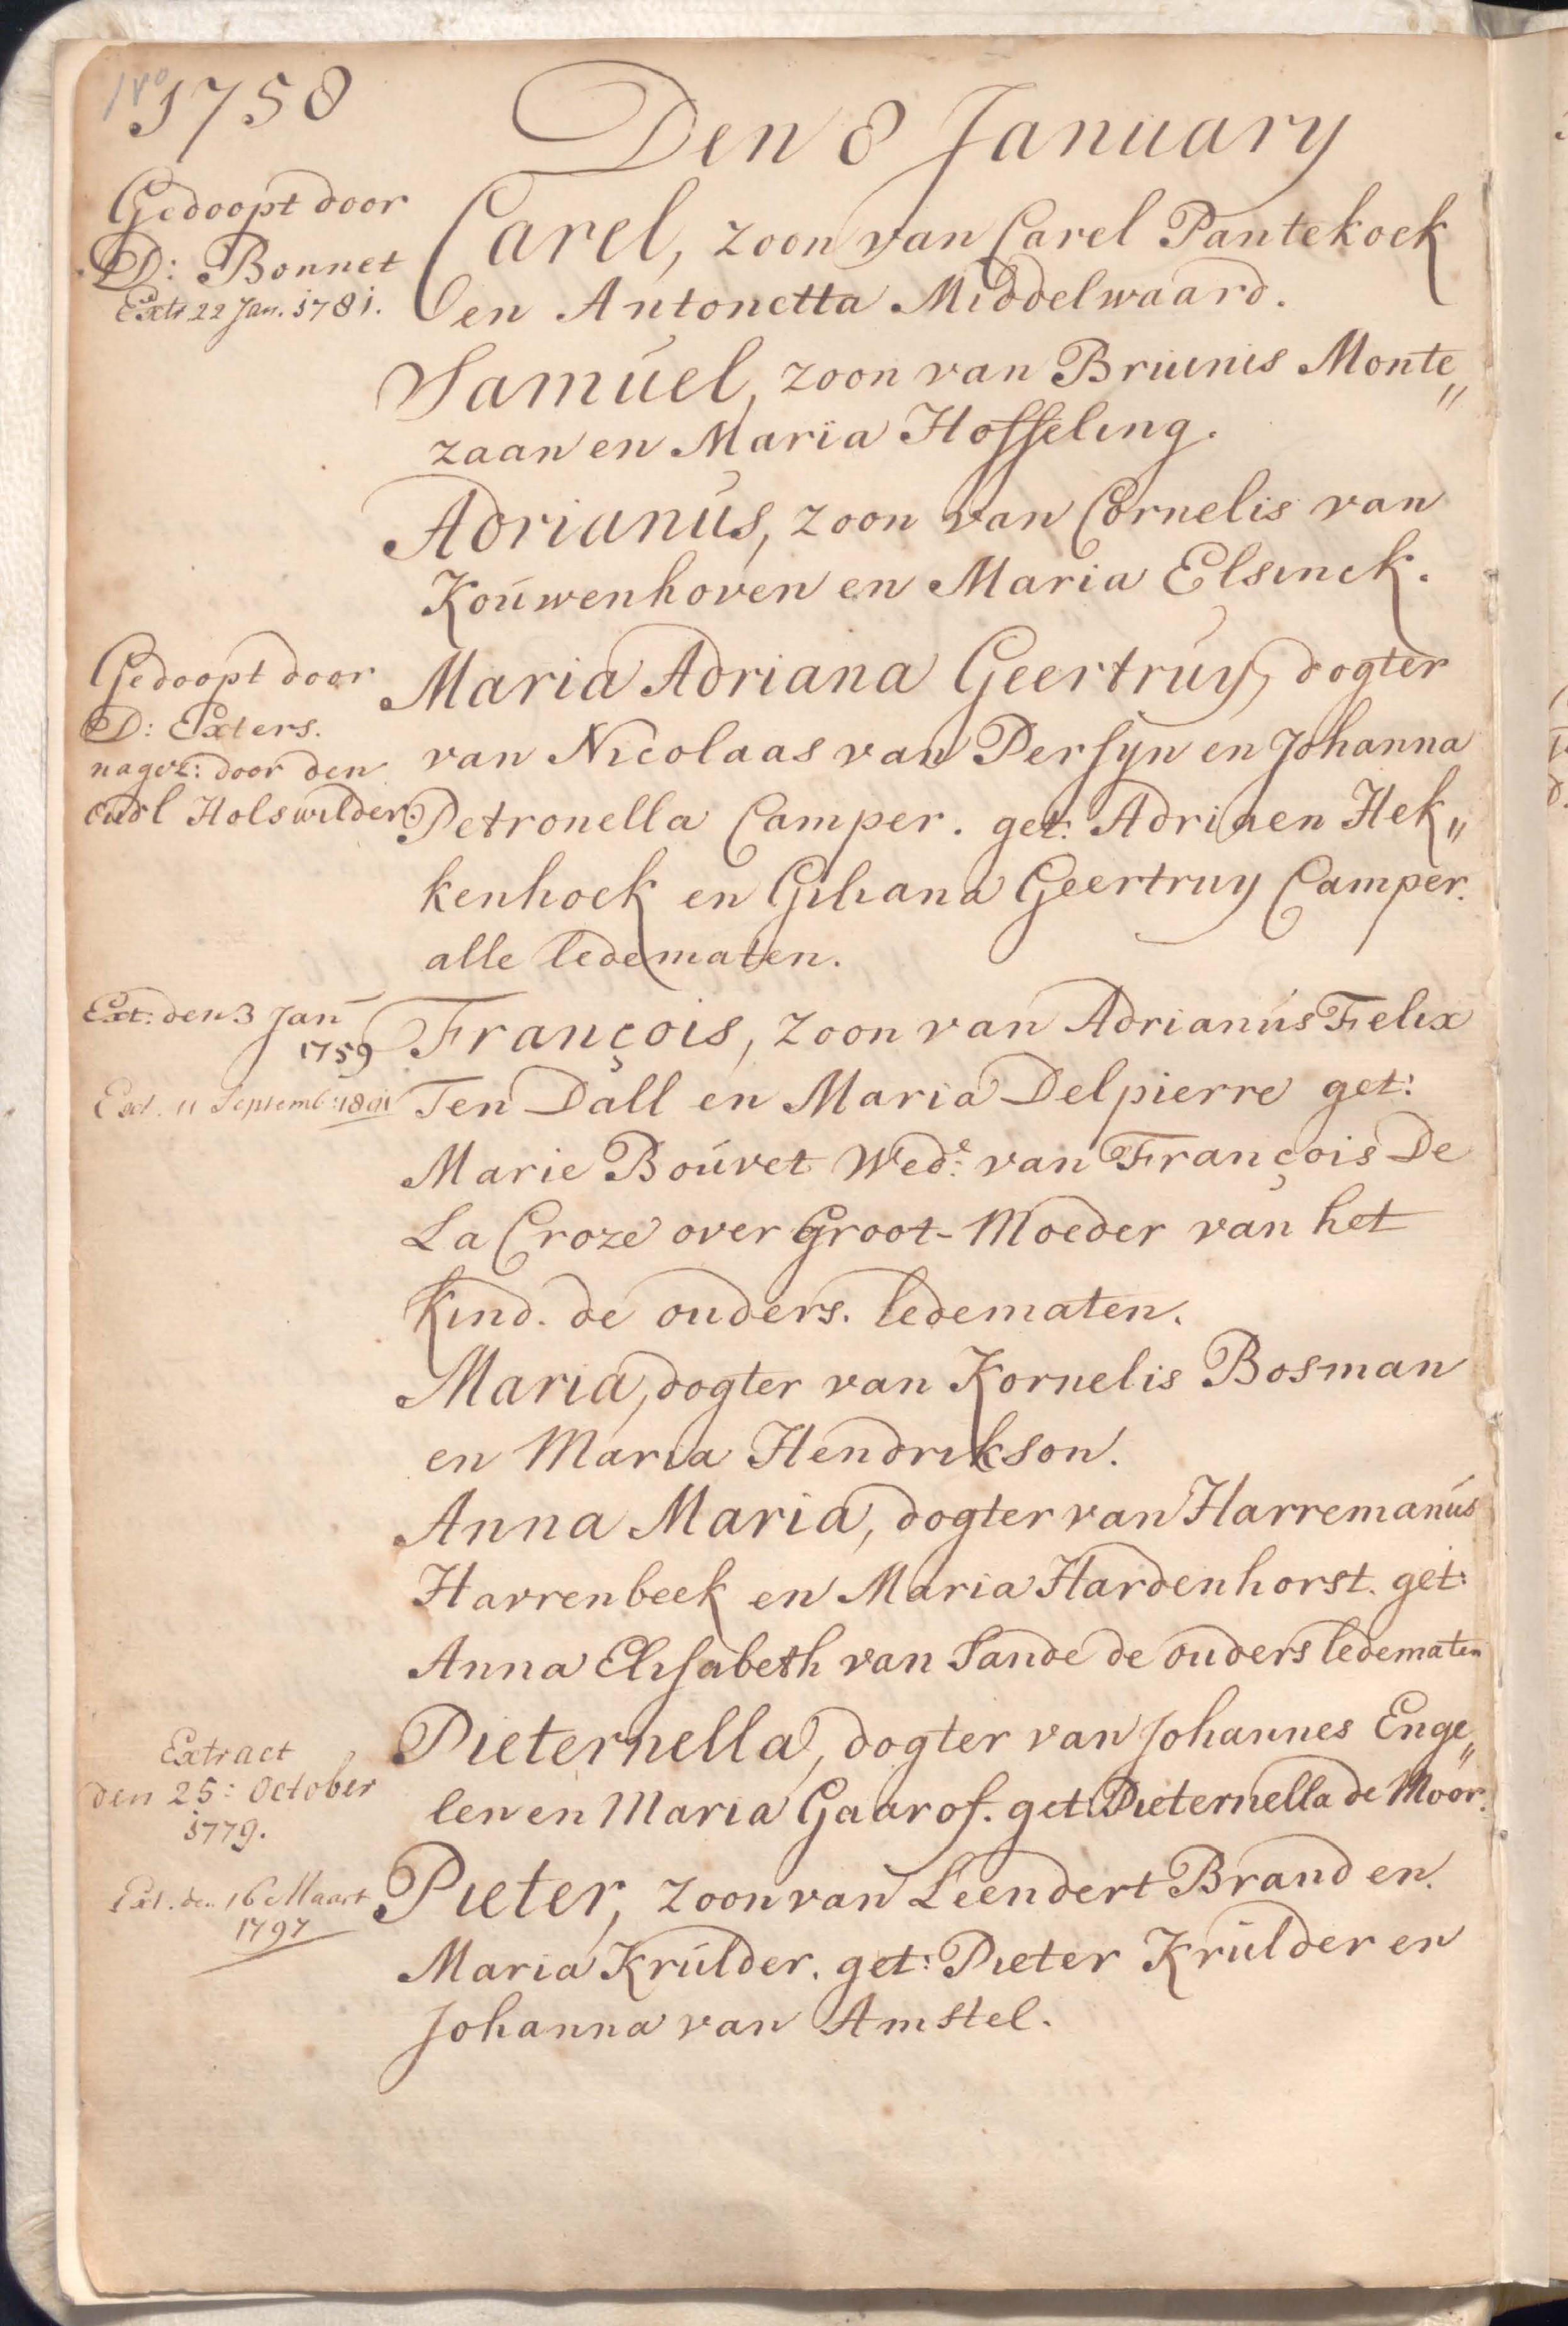 1758
Den 8 January
Gedoopt door
D: Bonnet
Extr 22 Jan. 1781.
Carel, zoon van Carel Pantekoek
en Antonetta Middelwaard.
Samuel, zoon van Briunis Monte„
zaan en Maria Hosseling.
Adrianus, zoon van Cornelis van
Kouwenhoven en Maria Elsinck.
Gedoopt door
D: Exters.
nagez: door den
oudl Holswilder.
Maria Adriana Geertruy, dogter
van Nicolaas van Persyn en Johanna
Petronella Camper. get: Adrinen Hek„
kenhoek en Giliana Geertruy Camper.
alle ledematen.
Ext: den 3 Jan
1759
Ext. 11 Septemb: 1801
François, zoon van Adrianus Felix
Ten Dall en Maria Delpierre get:
Marie Bouvet Wed:e van François De
La Croze over Groot-Moeder van het
Kind. de ouders. ledematen.
Maria, dogter van Kornelis Bosman
en Maria Hendrikson.
Anna Maria, dogter van Harremanus
Harrenbeek en Maria Hardenhorst. get:
Anna Elisabeth van Sande de ouders ledematen
Extract
den 25: October
1779.
Pieternella, dogter van Johannes Enge„
len en Maria Gaarof. get: Pieternella de Moor.
Ext. den 16 Maart
1797
Pieter, zoon van Leendert Brand en
Maria Krulder. get: Pieter Krulder en
Johanna van Amstel.